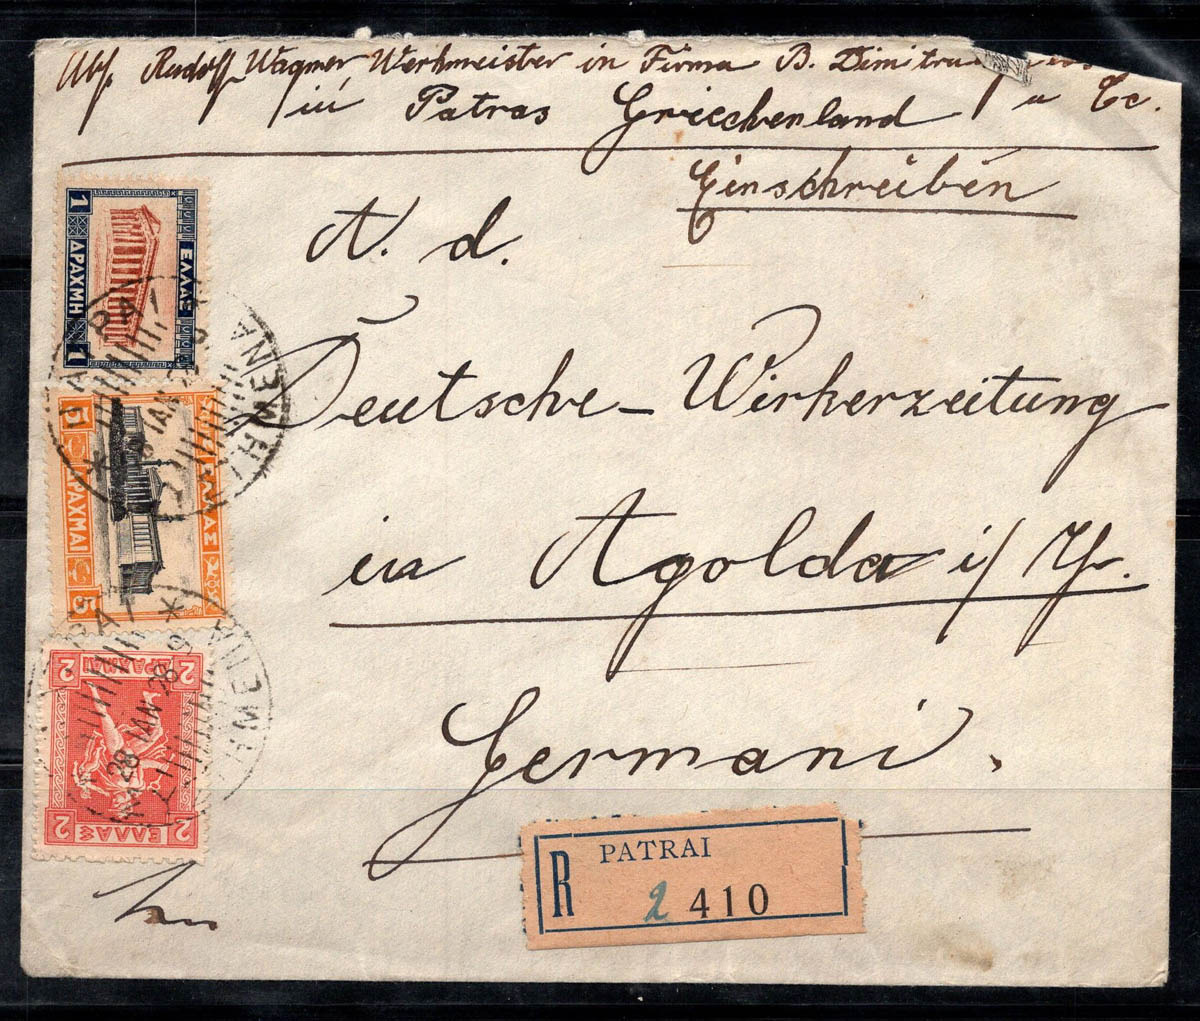 Abs. Rudolf Wagner Werkmeister in Firma B. Dimitra
in Patras Griechenland u Co.
Einschreiben
A. d.
Deutsche-Wirkerzeitung
in Apolda i/Th.
Germani.
1 ΔΡΑΧΜΗ 1
ΕΛΛΑΣ
5 ΔΡΑΧΜΑΙ 5
ΕΛΛΑΣ
2 ΔΡΑΧΜΑΙ 2
2 ΕΛΛΑΣ 2
28 ΙΑΝ 28
R PATRAI
2 410